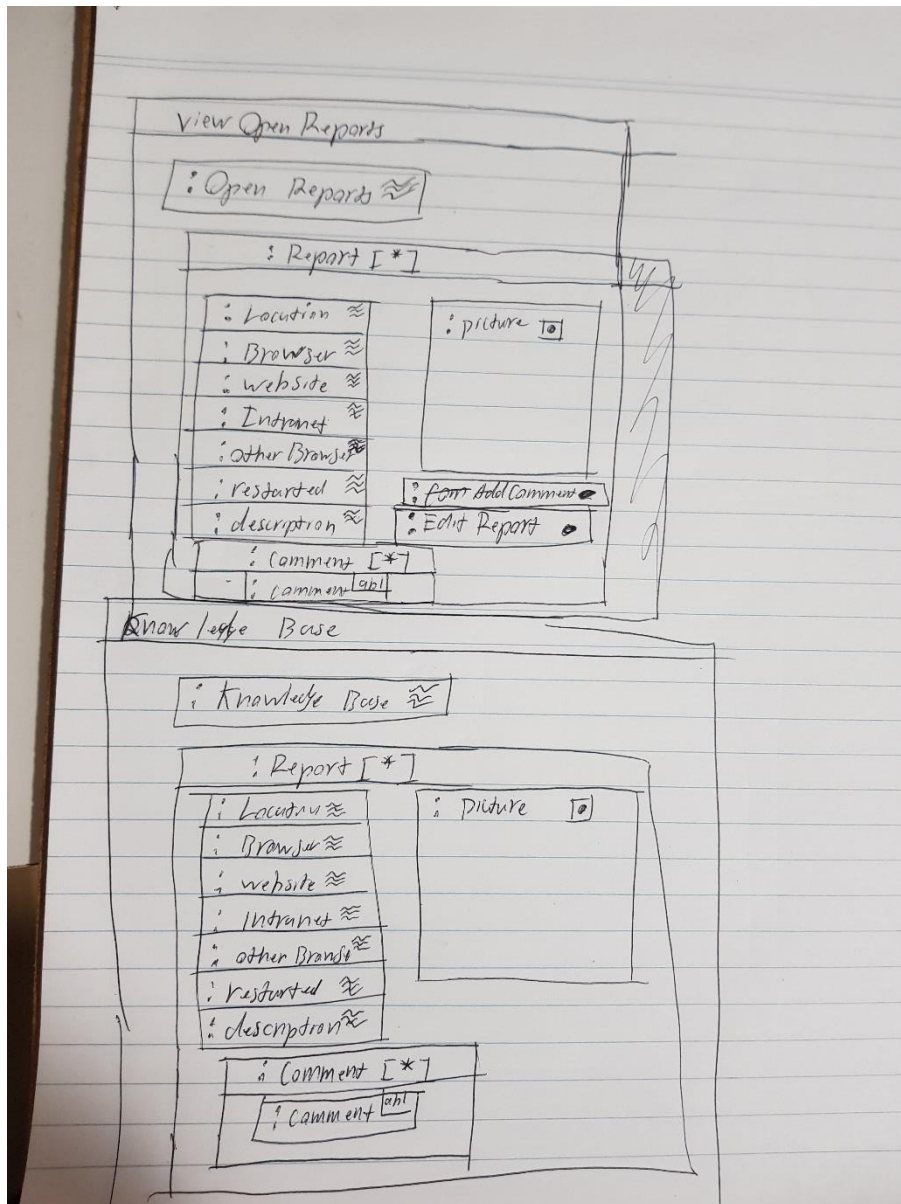 View Open Reports
: Open Reports
: Report [*]
: Location
: picture
: Browser
: website
: Intranet
: other Browser
: restarted
: Add Comment
: description
: Edit Report
: Comment [*]
: comment abl
Knowledge Base
: Knowledge Base
: Report [*]
: Location
: Picture
: Browser
: website
: Intranet
: other Brows
: restarted
: description
: Comment [*]
: comment abl